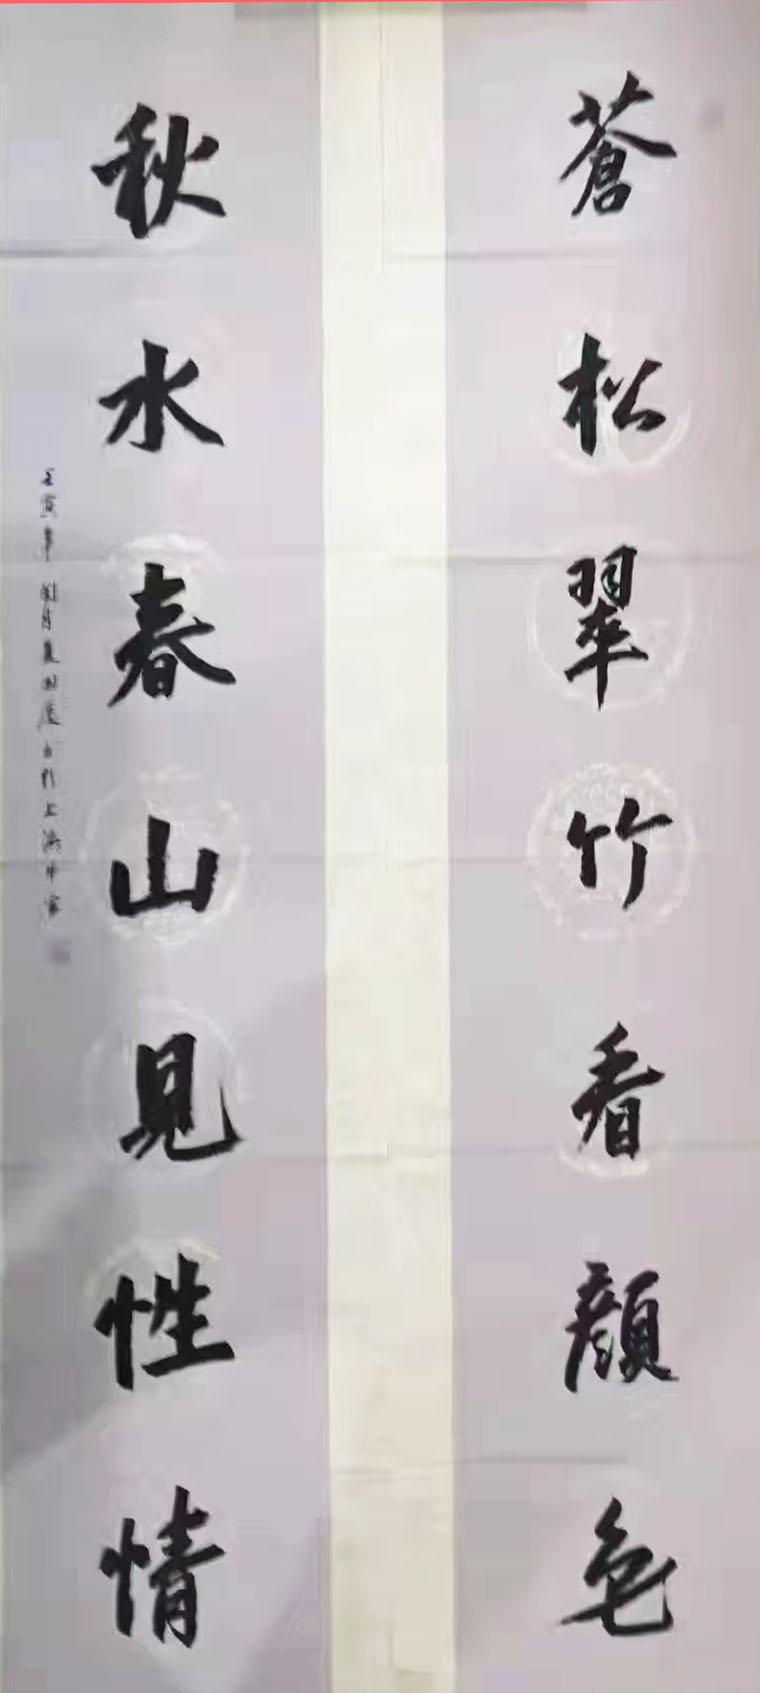 蒼松翠竹看顏色
秋水春山見性情
壬寅年
於上海